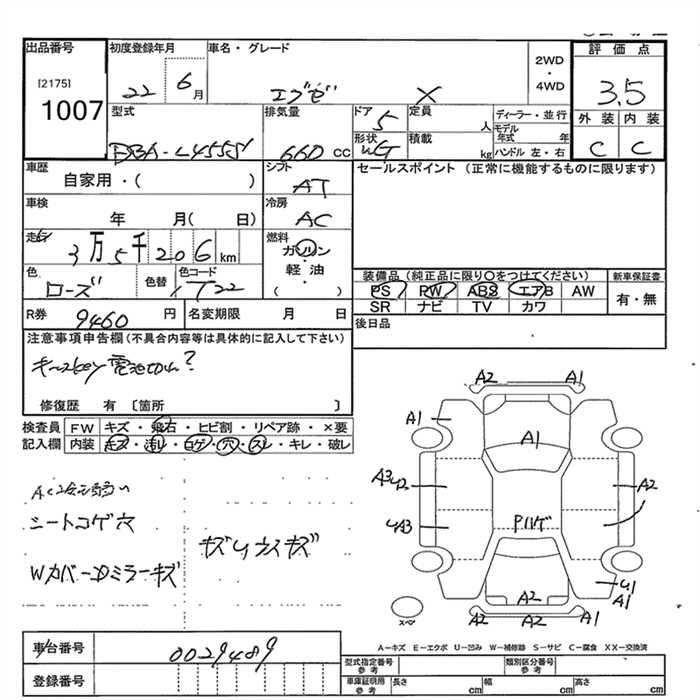 出品番号
[2175]
1007
初度登録年月
22 6月
車名・グレード
エブゼ X
2WD
・
4WD
評価点
3.5
外装 内装
C C
型式
DBA-L455S
排気量
660 CC
ドア
5
形状
WG
定員
人
積載
kg
ディーラー・並行
モデル年式 年
ハンドル 左・右
車歴
自家用・( )
シフト
AT
セールスポイント (正常に機能するものに限ります)
車検
年 月( 日)
冷房
AC
走行
3万5千206km
燃料
ガソリン
軽油
( )
色
ローズ
色替
色コード
T22
装備品 (純正品に限り○をつけてください)
PS PW ABS エアB AW
SR ナビ TV カワ
新車保証書
有・無
R券
9460 円
名変期限 月 日
後日品
注意事項申告欄(不具合内容等は具体的に記入して下さい)
キースkey 電池切れ?
修復歴 有 〔箇所 〕
検査員
記入欄
FW キズ・飛石・ヒビ割・リペア跡・×要
内装 キズ・汚レ・コゲ・穴・スレ・キレ・破レ
シートコゲ穴
キズ
Wカバー
ミラーキズ
A2 A1
A1
A1
A3 U2
A2
UA3
Pハゲ
U1
A1
A2
A2 A2 A1
スペア
A-キズ E-エクボ U-凹み W-補修跡 S-サビ C-腐食 XX-交換済
車台番号
0029489
登録番号
型式指定番号
参考
類別区分番号
参考
車庫証明用
参考
長さ cm
幅 cm
高さ cm